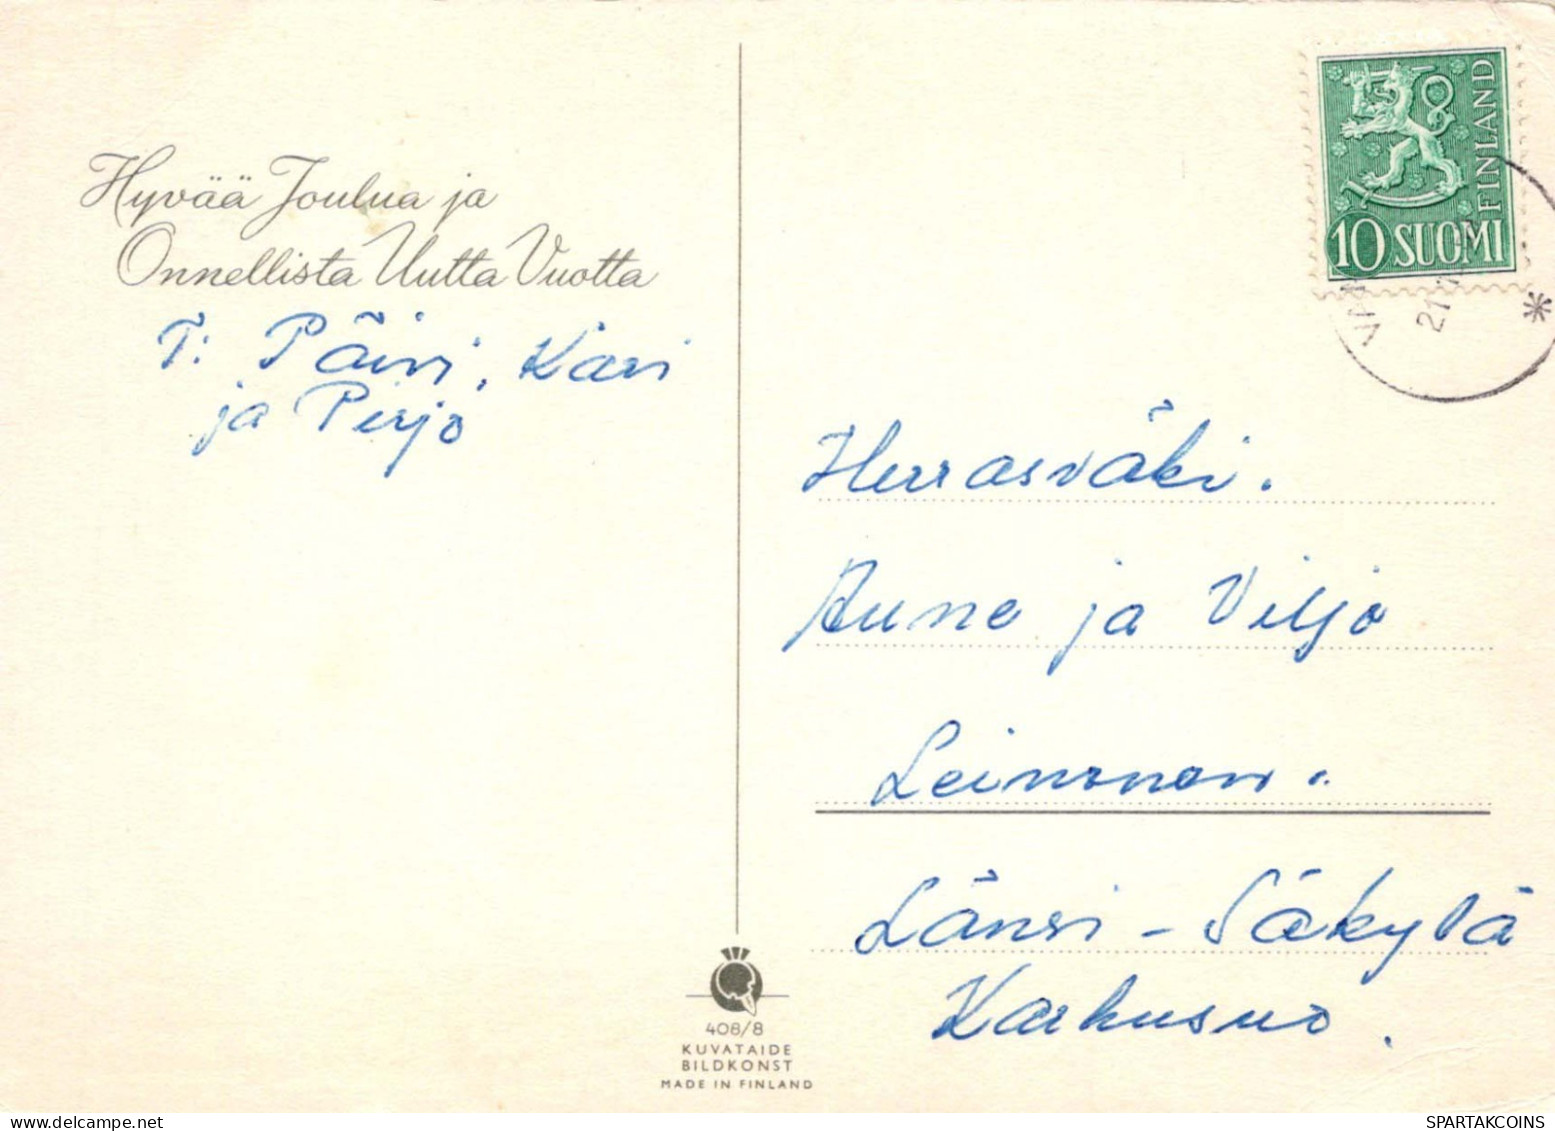 Hyvää Joulua ja
Onnellista Uutta Vuotta
T: Päivi, Kari
ja Pirjo
10 SUOMI
FINLAND
21
Herrasväki.
Aune ja Viljo
Leinonen.
Länsi-Säkylä
Karhusuo.
408/8
KUVATAIDE
BILDKONST
MADE IN FINLAND
SPARTAKCOINS